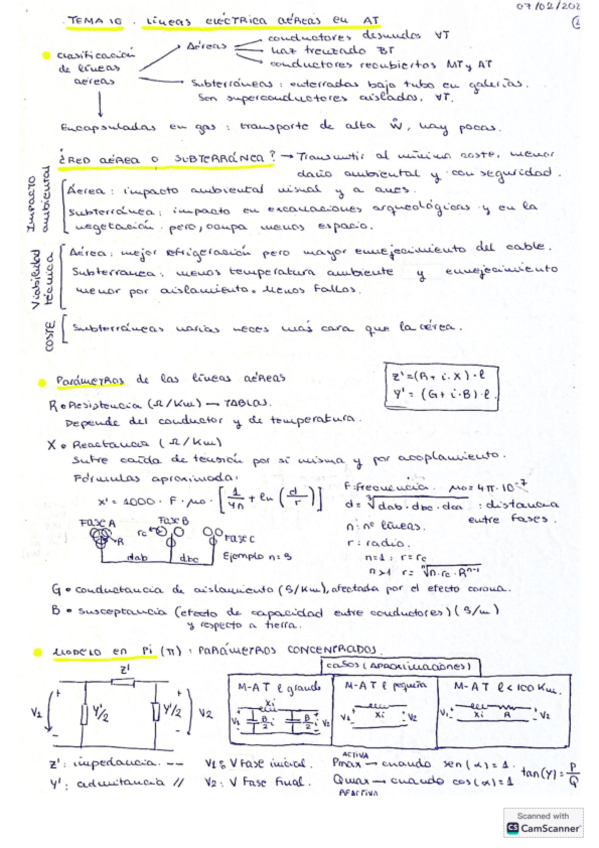 07/02/202
TEMA 10. LÍNEAS ELÉCTRICA AÉREAS EN AT
Clasificación de líneas aéreas
Aéreas
conductores desnudos AT
haz trenzado BT
conductores recubiertos MT y AT
Subterráneas: enterradas bajo tubo en galerías.
Son superconductores aislados, AT.
Encapsuladas en gas: transporte de alta W, hay pocas.
¿RED AÉREA O SUBTERRÁNEA? → Transmitir al mínimo coste, menor
daño ambiental y con seguridad.
Impacto ambiental
Aérea: impacto ambiental visual y a aves.
Subterránea: impacto en excavaciones arqueológicas y en la
vegetación pero, ocupa menos espacio.
Viabilidad técnica
Aérea: mejor refrigeración pero mayor envejecimiento del cable.
Subterranea: menos temperatura ambiente y envejecimiento
menor por aislamiento. Menos fallos.
COSTE
Subterráneas varias veces más cara que la aérea.
Parámetros de las líneas aéreas
Z'=(R+i·X)·l
Y'=(G+i·B)·l
R • Resistencia (Ω/Km) → TABLAS.
Depende del conductor y de temperatura.
X • Reactancia (Ω/Km)
Sufre caída de tensión por si misma y por acoplamiento.
Fórmulas aproximada:
X' = 1000 · F · μo · [1/4n + ln (d/r)]
F: frecuencia. μo = 4π·10⁻⁷
d = ∛dab·dbc·dca : distancia entre fases.
n: nº líneas.
r: radio.
n=1: r=rc
n>1 r= ⁿ√n·rc·Rⁿ⁻¹
Fase A
Fase B
Fase C
rc
R
dab
dbc
Ejemplo n=3
G • conductancia de aislamiento (S/Km), afectada por el efecto corona.
B • susceptancia (efecto de capacidad entre conductores) (S/m)
y respecto a tierra.
MODELO en Pi (π): PARÁMETROS CONCENTRADOS.
Z'
V1
Y'/2
Y'/2
V2
CASOS (APROXIMACIONES)
M-AT l grande
M-AT l pequeña
M-AT l<100 Km.
Xi
V1
B/2 i
B/2 i
V2
Xi
V2
V1
Xi
R
V2
Z': impedancia. --
V1: V Fase inicial.
ACTIVA
Pmax → cuando sen(α)=1.
tan(γ)=P/Q
Y': admitancia //
V2: V Fase Final.
Qmax → cuando cos(α)=1
REACTIVA
Scanned with
CS CamScanner